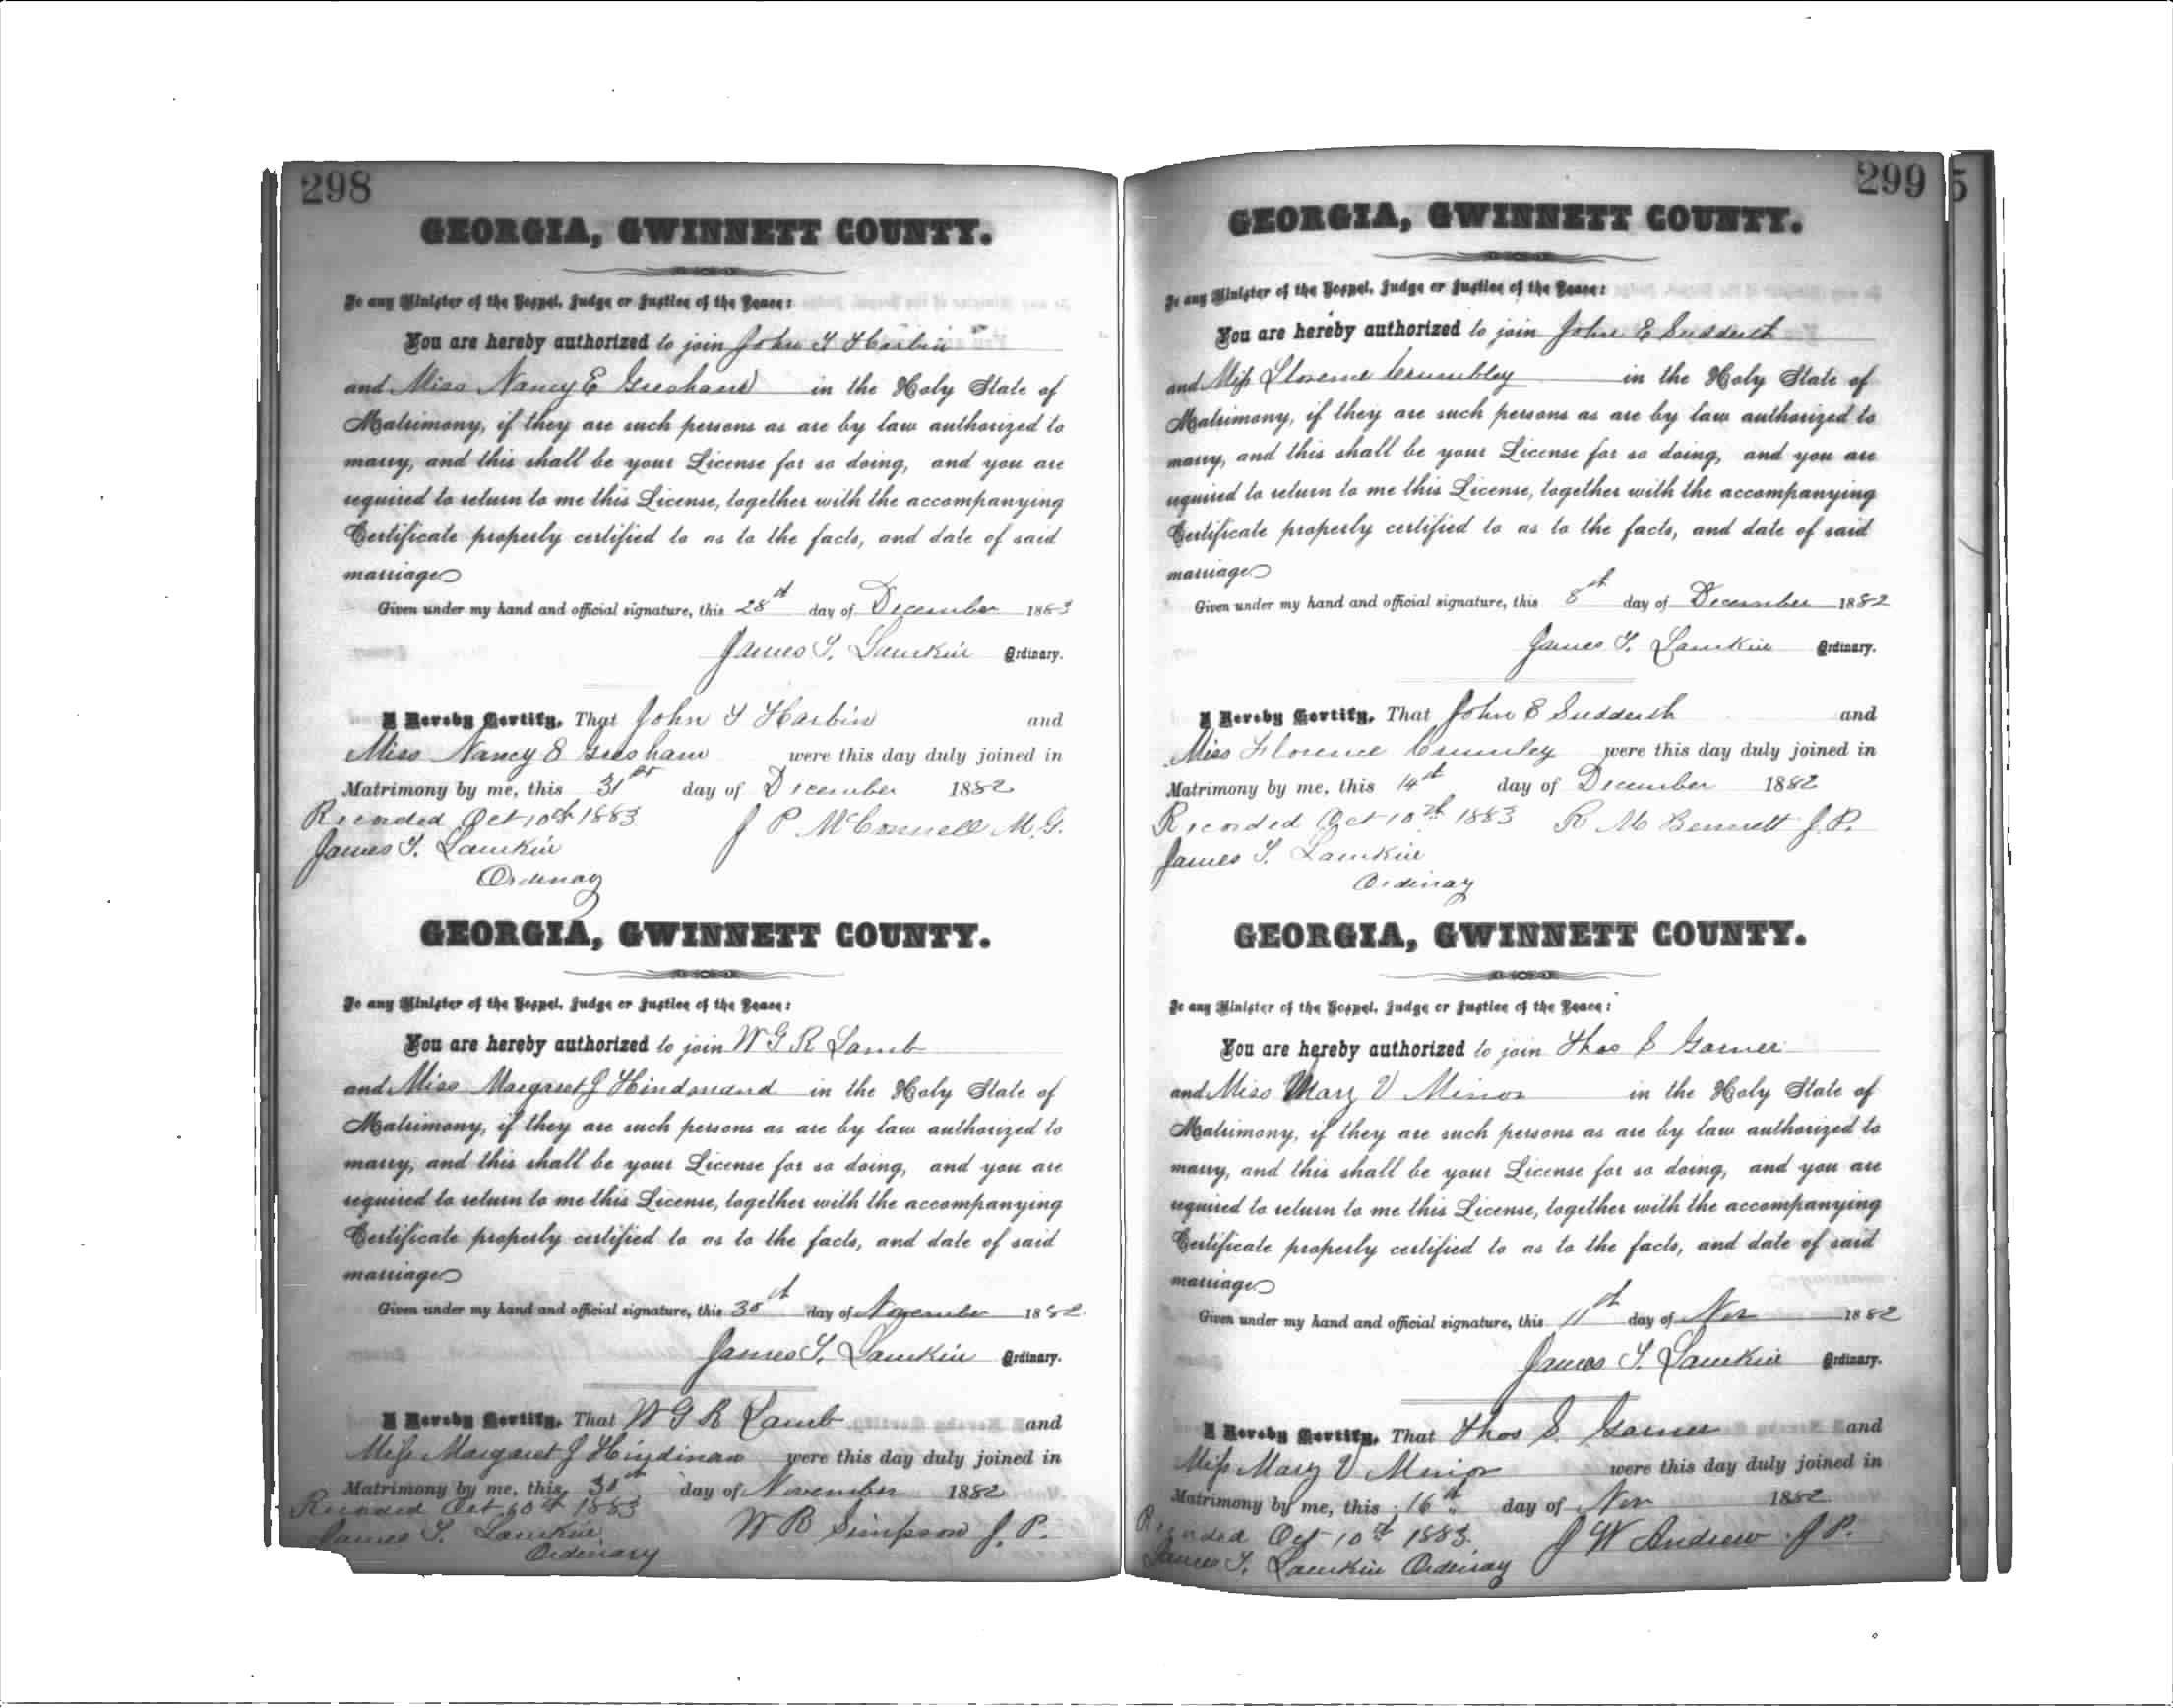 298
GEORGIA, GWINNETT COUNTY.
To any Minister of the Gospel, Judge or Justice of the Peace:
You are hereby authorized to join John T Harbin
and Miss Nancy E Gresham in the Holy State of
Matrimony, if they are such persons as are by law authorized to
marry, and this shall be your License for so doing, and you are
required to return to me this License, together with the accompanying
Certificate properly certified to as to the facts, and date of said
marriage
Given under my hand and official signature, this 28th day of December 1883
James T. Lamkin Ordinary.
I Hereby Certify, That John T Harbin and
Miss Nancy E Gresham were this day duly joined in
Matrimony by me, this 31st day of December 1882
Recorded Oct 10th 1883 J P McConnell M.G.
James T. Lamkin
Ordinay
GEORGIA, GWINNETT COUNTY.
To any Minister of the Gospel, Judge or Justice of the Peace:
You are hereby authorized to join W G R Lamb
and Miss Margaret J Hindmand in the Holy State of
Matrimony, if they are such persons as are by law authorized to
marry, and this shall be your License for so doing, and you are
required to return to me this License, together with the accompanying
Certificate properly certified to as to the facts, and date of said
marriage
Given under my hand and official signature, this 30th day of November 1882.
James T. Lamkin Ordinary.
I Hereby Certify, That W G R Lamb and
Miss Margaret J Hindman were this day duly joined in
Matrimony by me, this 30th day of November 1882
Recorded Oct 10th 1883 W B Simpson J.P.
James T. Lamkin
Ordinary
299 5
GEORGIA, GWINNETT COUNTY.
To any Minister of the Gospel, Judge or Justice of the Peace:
You are hereby authorized to join John E Suddeth
and Miss Florence Crumbley in the Holy State of
Matrimony, if they are such persons as are by law authorized to
marry, and this shall be your License for so doing, and you are
required to return to me this License, together with the accompanying
Certificate properly certified to as to the facts, and date of said
marriage
Given under my hand and official signature, this 8th day of December 1882
James T. Lamkin Ordinary.
I Hereby Certify, That John E Suddeth and
Miss Florence Crumley were this day duly joined in
Matrimony by me, this 14th day of December 1882
Recorded Oct 10th 1883 R M Bennett J.P.
James T. Lamkin
Ordinay
GEORGIA, GWINNETT COUNTY.
To any Minister of the Gospel, Judge or Justice of the Peace:
You are hereby authorized to join Thos S Garner
and Miss Mary V Minor in the Holy State of
Matrimony, if they are such persons as are by law authorized to
marry, and this shall be your License for so doing, and you are
required to return to me this License, together with the accompanying
Certificate properly certified to as to the facts, and date of said
marriage
Given under my hand and official signature, this 11th day of Nov 1882
James T. Lamkin Ordinary.
I Hereby Certify, That Thos S. Garner and
Miss Mary V Minor were this day duly joined in
Matrimony by me, this 16th day of Nov 1882
Recorded Oct 10th 1883. J W Andrew J P.
James T. Lamkin Ordinay